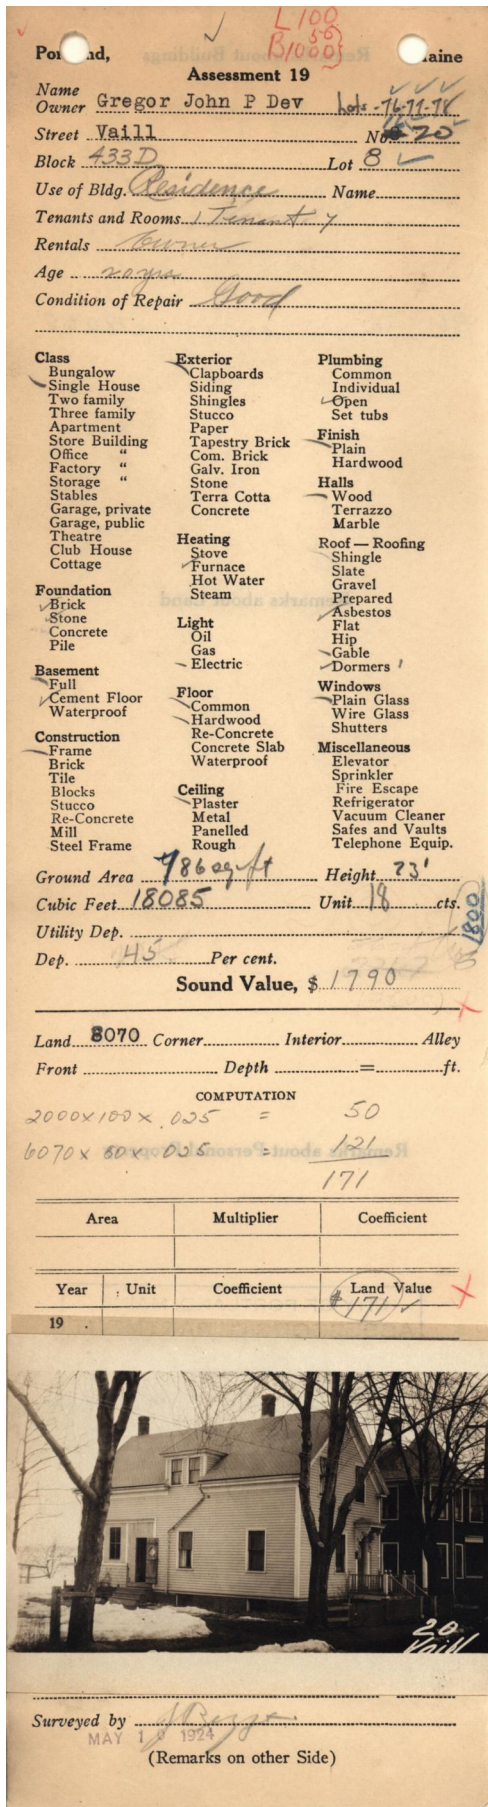 L 100
50
B1000
Po nd, aine
Assessment 19
Name
Owner Gregor John P Dev Lots -76-77-78
Street Vaill No. 20
Block 433D Lot 8
Use of Bldg. Residence Name
Tenants and Rooms 1 Tenant 7
Rentals Owner
Age 20 yrs
Condition of Repair Good
Class
Bungalow
Single House
Two family
Three family
Apartment
Store Building
Office "
Factory "
Storage "
Stables
Garage, private
Garage, public
Theatre
Club House
Cottage
Foundation
Brick
Stone
Concrete
Pile
Basement
Full
Cement Floor
Waterproof
Construction
Frame
Brick
Tile
Blocks
Stucco
Re-Concrete
Mill
Steel Frame
Exterior
Clapboards
Siding
Shingles
Stucco
Paper
Tapestry Brick
Com. Brick
Galv. Iron
Stone
Terra Cotta
Concrete
Heating
Stove
Furnace
Hot Water
Steam
Light
Oil
Gas
Electric
Floor
Common
Hardwood
Re-Concrete
Concrete Slab
Waterproof
Ceiling
Plaster
Metal
Panelled
Rough
Plumbing
Common
Individual
Open
Set tubs
Finish
Plain
Hardwood
Halls
Wood
Terrazzo
Marble
Roof — Roofing
Shingle
Slate
Gravel
Prepared
Asbestos
Flat
Hip
Gable
Dormers 1
Windows
Plain Glass
Wire Glass
Shutters
Miscellaneous
Elevator
Sprinkler
Fire Escape
Refrigerator
Vacuum Cleaner
Safes and Vaults
Telephone Equip.
Ground Area 786 sq ft Height 23'
Cubic Feet 18085 Unit 18 cts.
1800
Utility Dep.
Dep. 45 Per cent.
Sound Value, $ 1790
Land 8070 Corner Interior Alley
Front Depth = ft.
COMPUTATION
2000 x 100 x .025 = 50
6070 x 80 x .025 = 121
171
Area Multiplier Coefficient
Year Unit Coefficient Land Value
19 . $171
20
Vaill
Surveyed by
MAY 1 1924
(Remarks on other Side)